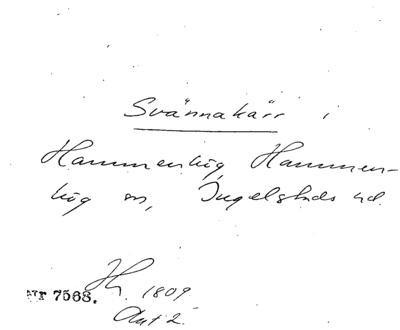 Svännakärr i
Hammenhög Hammen-
hög sn, Ingelstads hd.
Nr 7568. 1809
Akt 2.